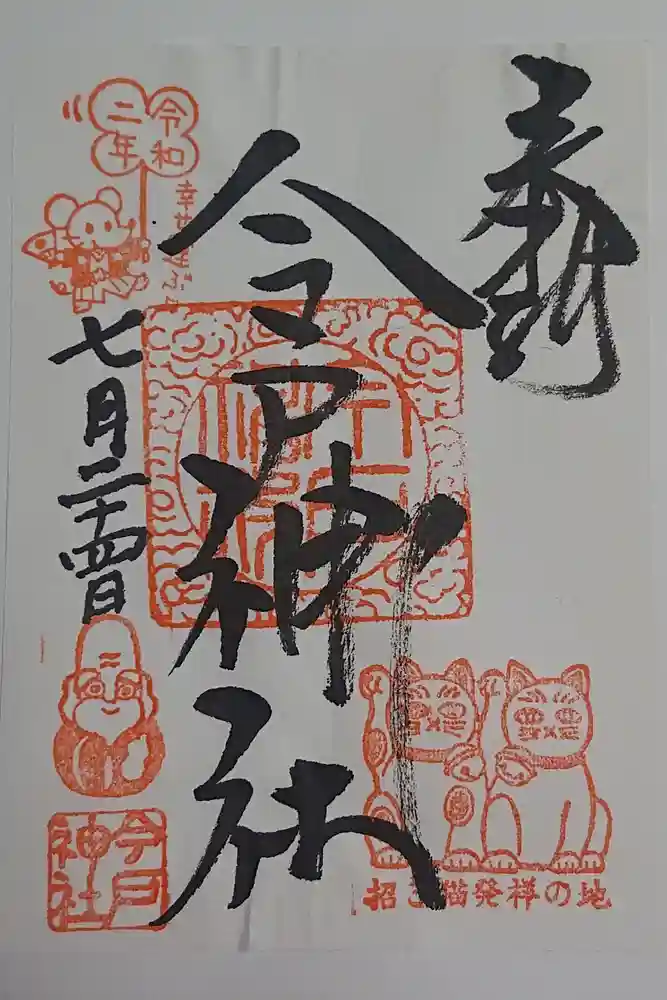 奉拝
今戸神社
令和
二年
七月二十四日
今戸
神社
招き猫発祥の地